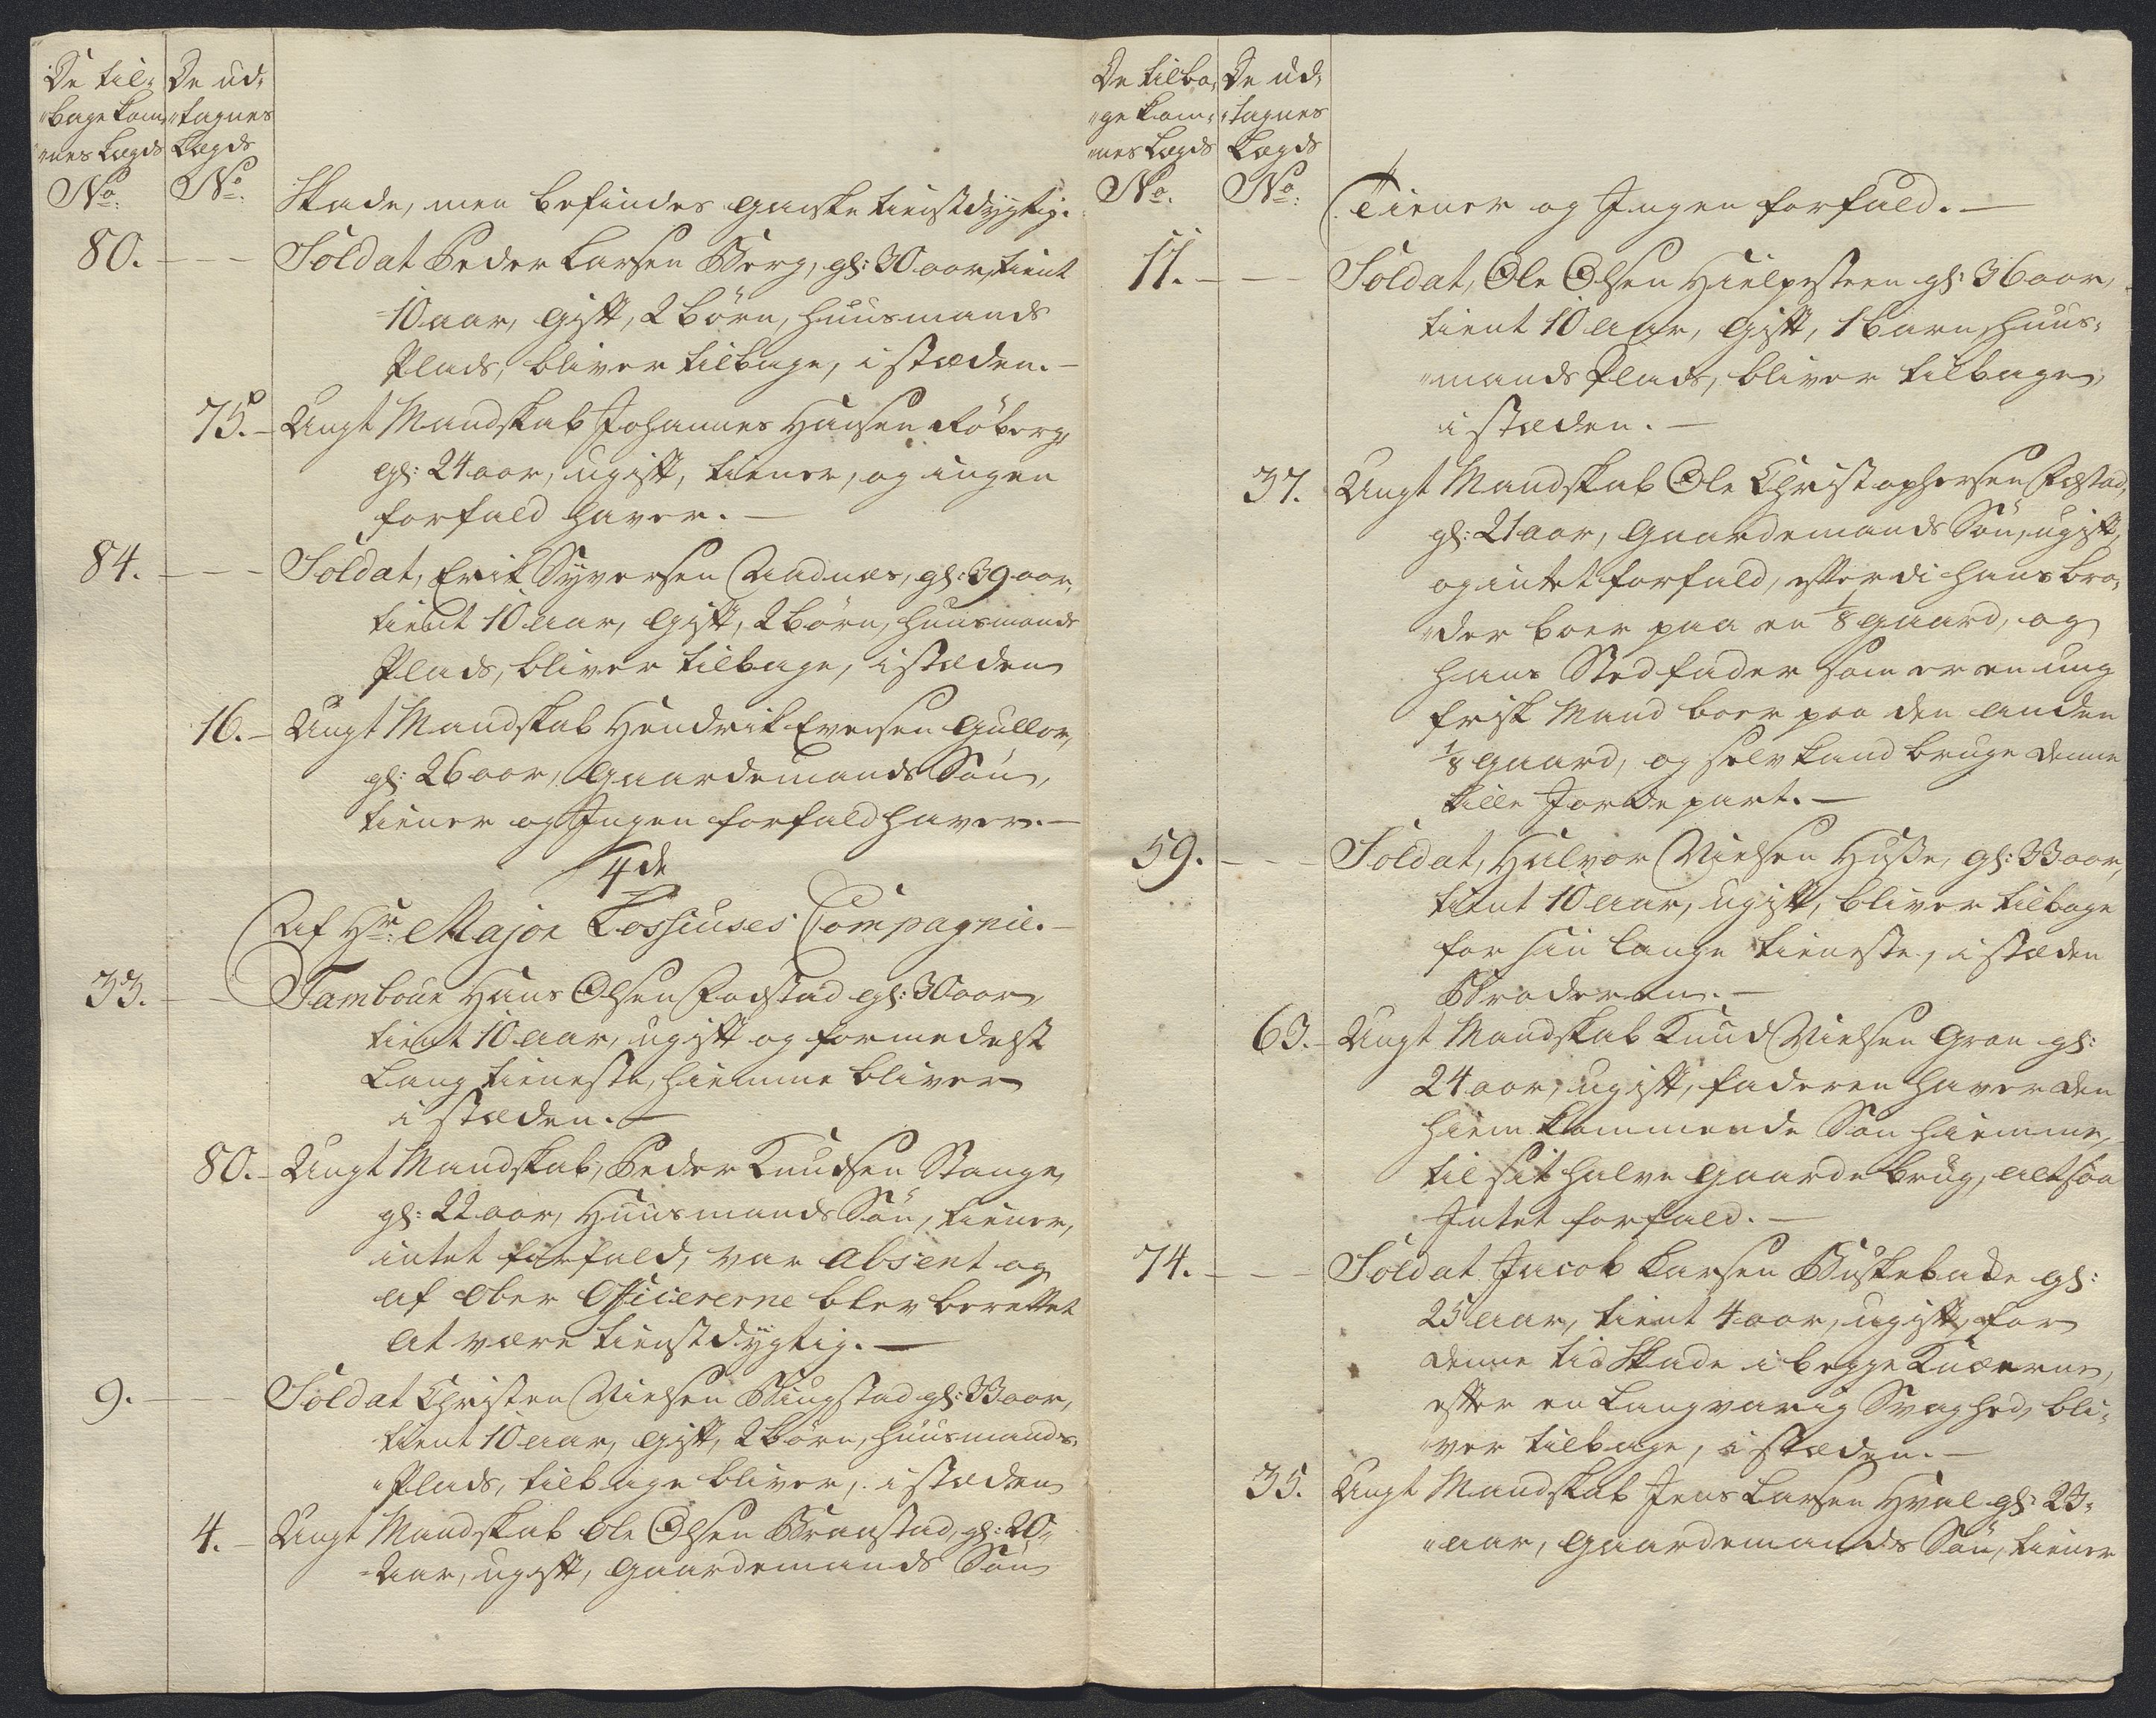 De til-
"bagekom-
"nes Lægds
No.
De ud-
"tagnes
Lægds
No.
Skade, men befindes ganske tienstdygtig.
80. - - - Soldat Peder Larsen Berg, gl: 30 aar, tient
10 aar, gift, 2 börn, huusmands
Plads, bliver tilbage, i stæden. -
75. - Ungt Mandskab Johannes Hansen Röberg,
gl: 24 aar, ugift, tiener, og ingen
forfald haver. -
84. - - - Soldat, Erik Syversen Andnæs, gl: 39 aar,
tient 10 aar, gift, 2 börn, huusmands
Plads, bliver tilbage, i stæden
16. - Ungt Mandskab Hendrik Evensen Gullor,
gl: 26 aar, Gaardemands Sön,
tiener og Ingen forfald haver. -
4de
Af Hr: Major Lossiuses Compagnie. -
33. - - Tambour Hans Olsen Fodstad gl: 30 aar,
tient 10 aar, ugift og formedelst
Lang tieneste, hiemme bliver
i stæden. -
80. - Ungt Mandskab, Peder Knudsen Stange,
gl: 22 aar, Huusmands Sön, tiener,
intet forfald, var absent og
af Ober Officererne blev berettet
at være tienstdygtig. -
9. - - Soldat Christen Nielsen Ringstad gl: 33 aar,
tient 10 aar, gift, 2 börn, huusmands
"Plads, tilbage bliver, i stæden
4. - Ungt Mandskab Ole Olsen Branstad, gl: 20
Aar, ugift, Gaardemands Sön
De tilba-
"ge kom-
"nes Lægds
No.
De ud-
"tagnes
Lægds
No.
Tiener og Ingen forfald. -
11. - - Soldat, Ole Olsen Hielpesteen gl: 36 aar,
tient 10 aar, gift, 1 barn, huus-
"mands Plads, bliver tilbage,
i stæden. -
37. Ungt Mandskab Ole Christophersen Fostad,
gl: 21 aar, Gaardemands Sön, ugift,
og intet forfald, efterdi hans bro-
"der boer paa en 1/8 gaard, og
hans Stedfader som er en ung
frisk Mand boer paa den anden
1/8 gaard, og selv kand bruge denne
lille Jorde part. -
59. - - - Soldat, Halvor Nielsen Huse, gl: 33 aar,
tient 10 aar, ugift, bliver tilbage
for sin lange tieneste, i stæden
Broderen. -
63. - Ungt Mandskab Knud Nielsen Gran gl:
24 aar, ugift, faderen haver den
hiem kommende Sön hiemme,
til sit halve gaarde brug, altsaa
Intet forfald. -
74. - - - Soldat Jacob Larsen Buskebake gl:
25 aar, tient 4 aar, ugift, for
denne tid Skade i begge Knæerne,
efter en Langvarig Svaghed, bli-
"ver tilbage, i stæden. -
35. Ungt Mandskab Jens Larsen Hval gl: 23-
"aar, Gaardemands Sön, tiener